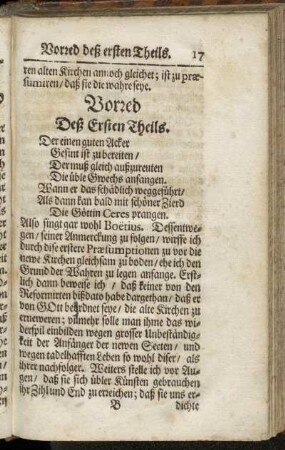 Vorred deß ersten Theils. 17
ren alten Kirchen annoch gleichet; ist zu præ-
sumiren / daß sie die wahre seye.
Vorred
Deß Ersten Theils.
Der einen guten Acker
Gesint ist zu bereiten /
Der muß gleich außzureuten
Die üble Gwechs anfangen.
Wann er das schädlich weggeführt /
Als dann kan bald mit schöner Zierd
Die Göttin Ceres prangen.
Also singt gar wohl Boëtius. Dessentwe-
gen / seiner Anmerckung zu folgen / wurffe ich
durch dise erstere Præsumptionen zu vor die
newe Kirchen gleichsam zu boden / ehe ich den
Grund der Wahren zu legen ansange. Erst-
lich dann beweise ich / daß keiner von den
Reformirten bißdato habe dargethan / daß er
von GOtt beordnet seye / die alte Kirchen zu
erneweren; vilmehr solle man ihme das wi-
derspil einbilden wegen grosser Unbeständig-
keit der Anfänger der newen Secten / und
wegen tadelhafften Leben so wohl diser / als
ihrer nachfolger. Weiters stelle ich vor Au-
gen / daß sie sich übler Künsten gebrauchen
ihr Zihl und End zu erreichen; daß sie uns er-
B dichte